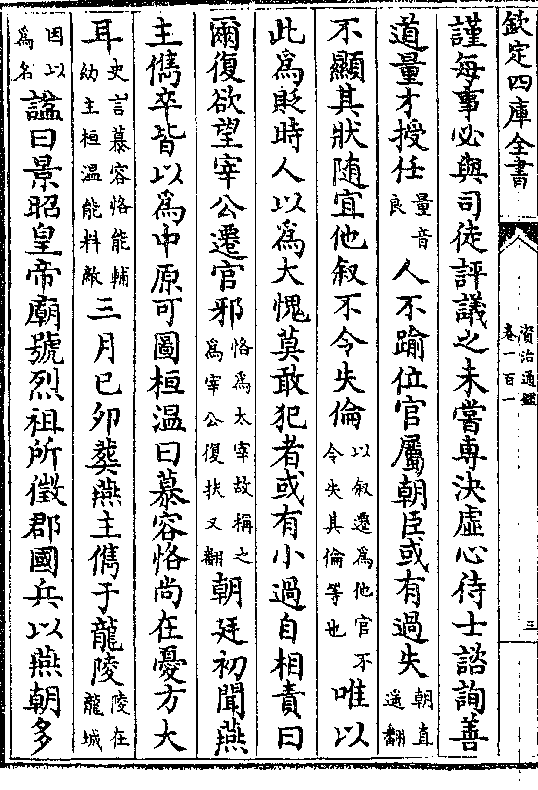 欽定四庫全書
資治通鑑
卷一百一
三
謹每事必與司徒評議之未嘗專決虛心待士諮詢善
道量才授任量音良人不踰位官屬朝臣或有過失朝直遥翻
不顯其狀随宜他叙不令失倫以叙遷為他官不令失其倫等也唯以
此為貶時人以為大愧莫敢犯者或有小過自相責曰
爾復欲望宰公遷官邪恪為太宰故稱之為宰公復扶又翻朝廷初聞燕
主儁卒皆以為中原可圖桓温曰慕容恪尚在憂方大
耳史言慕容恪能輔幼主桓温能料敵三月己卯葬燕主儁于龍陵陵在龍城
因以為名諡曰景昭皇帝廟號烈祖所徵郡國兵以燕朝多